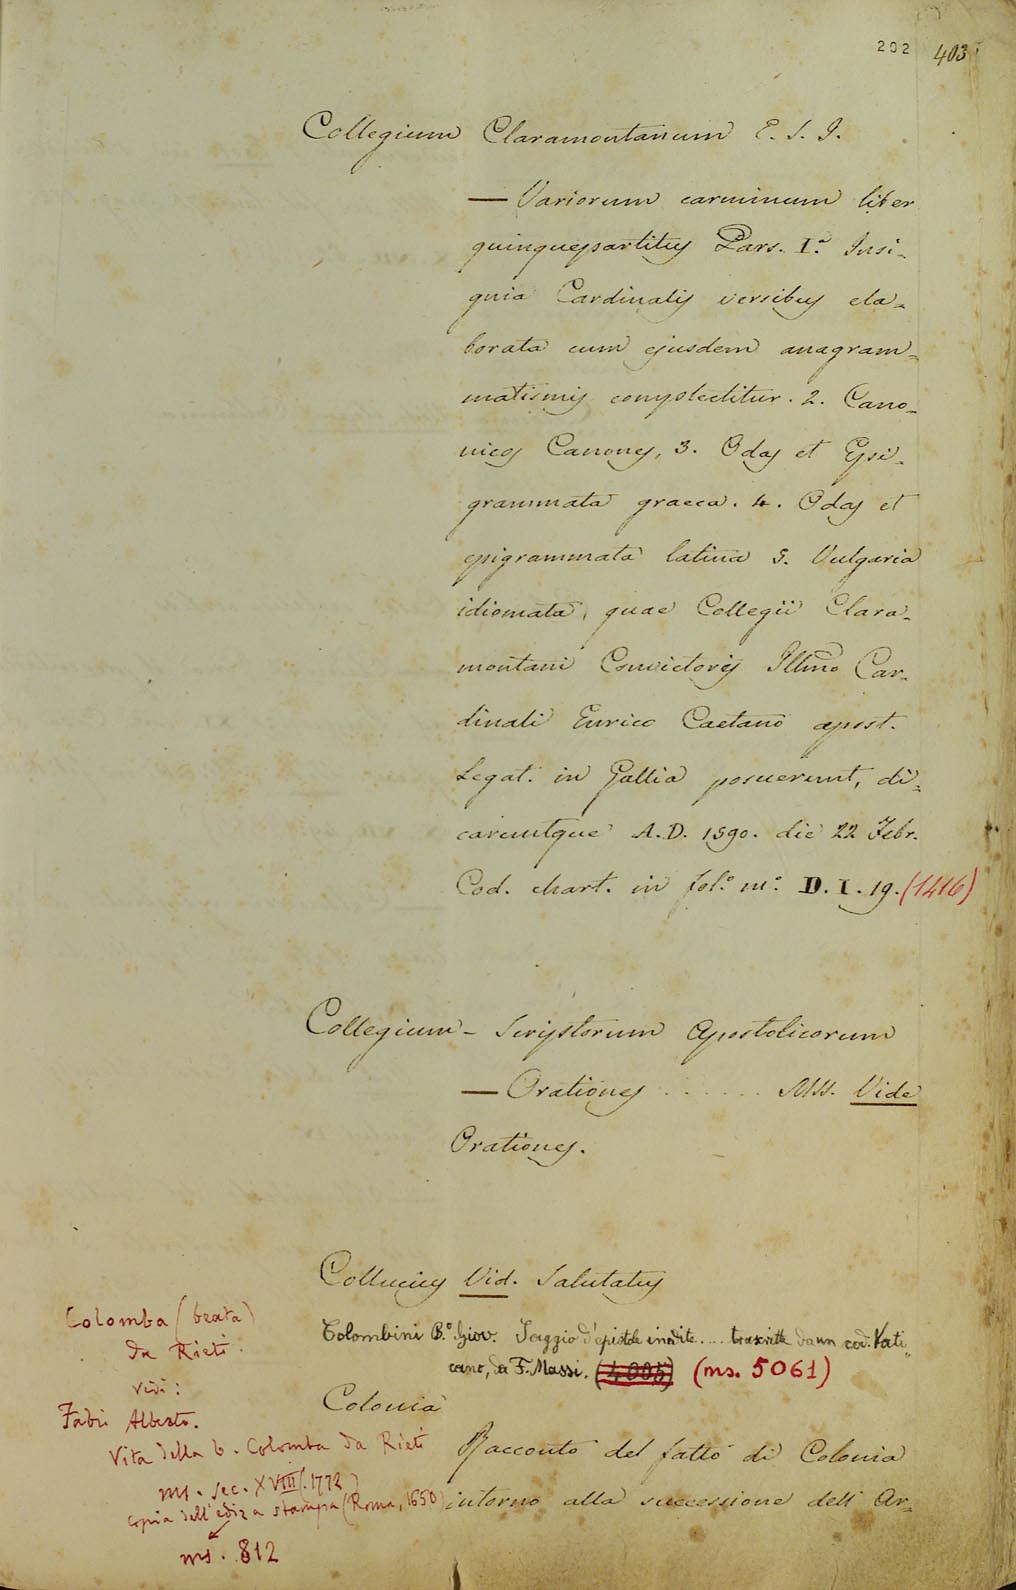 202 403
Collegium Claramontanum E. S. J.
— Variorum carminum liber
quinquepartitus Pars. I.ª Insi-
gnia Cardinalis versibus ela-
borata cum ejusdem anagram-
matismis complectitur. 2. Cano-
nicos Canones, 3. Odas et Epi-
grammata graeca. 4. Odas et
epigrammata latina 5. Vulgaria
idiomata, quae Collegii Clara-
montani Convictoris Illmo Car-
dinali Enrico Caetano apost.
Legat. in Gallia posuerunt, di-
caruntque A.D. 1590. die 22 Febr.
Cod. chart. in fol.º m.º D. I. 19. (1416)
Collegium - Scriptorum Apostolicorum
— Orationes . . . . . . MSS. Vide
Orationes.
Collucius Vid. Salutatus
Colombini B.º Giov. Saggio d'epistole inedite .... trascritte da un cod. Vati-
cano, da F. Massi. (4005) (ms. 5061)
Colonia
Racconto del fatto di Colonia
intorno alla successione dell' Ar-
Colomba (beata)
da Rieti.
vedi:
Fabri Alberto.
Vita della b. Colomba da Rieti
ms. sec. XVIII (1772)
copia dell'ediz a stampa (Roma, 1650)
ms. 812